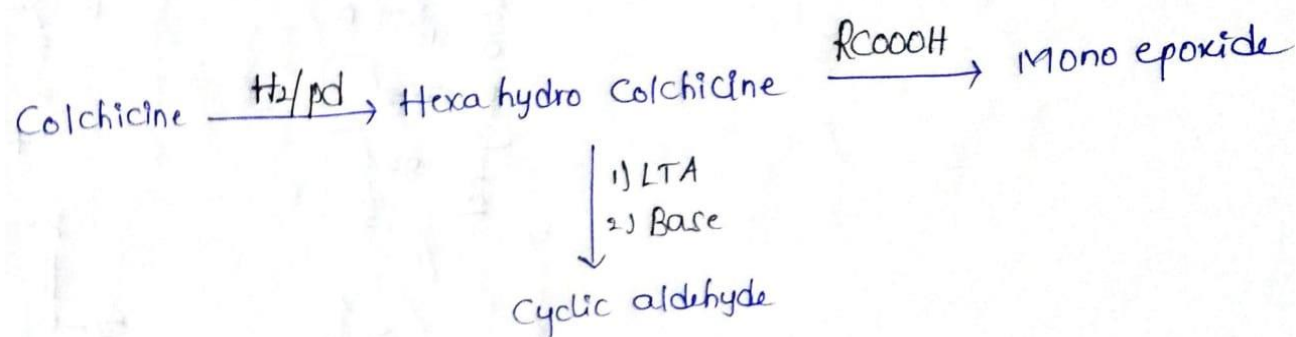 Colchicine H2/pd Hexa hydro Colchicine RCOOOH Mono epoxide
1) LTA
2) Base
Cyclic aldehyde